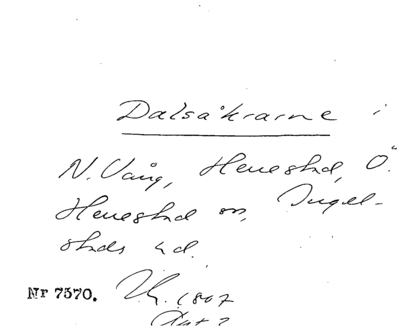 Dalsåkrarne i
N. Vång, Henestad, Ö.
Henestad sn, Ingel-
stads hd.
Nr 7570. 1807